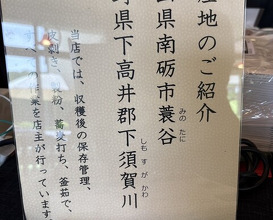 産地のご紹介
県南砺市蓑谷
みの たに
県下高井郡下須賀川
しも す が かわ
当店では、収穫後の保存管理、
皮剥き、製粉、蕎麦打ち、釜茹で、
の作業を店主が行っています